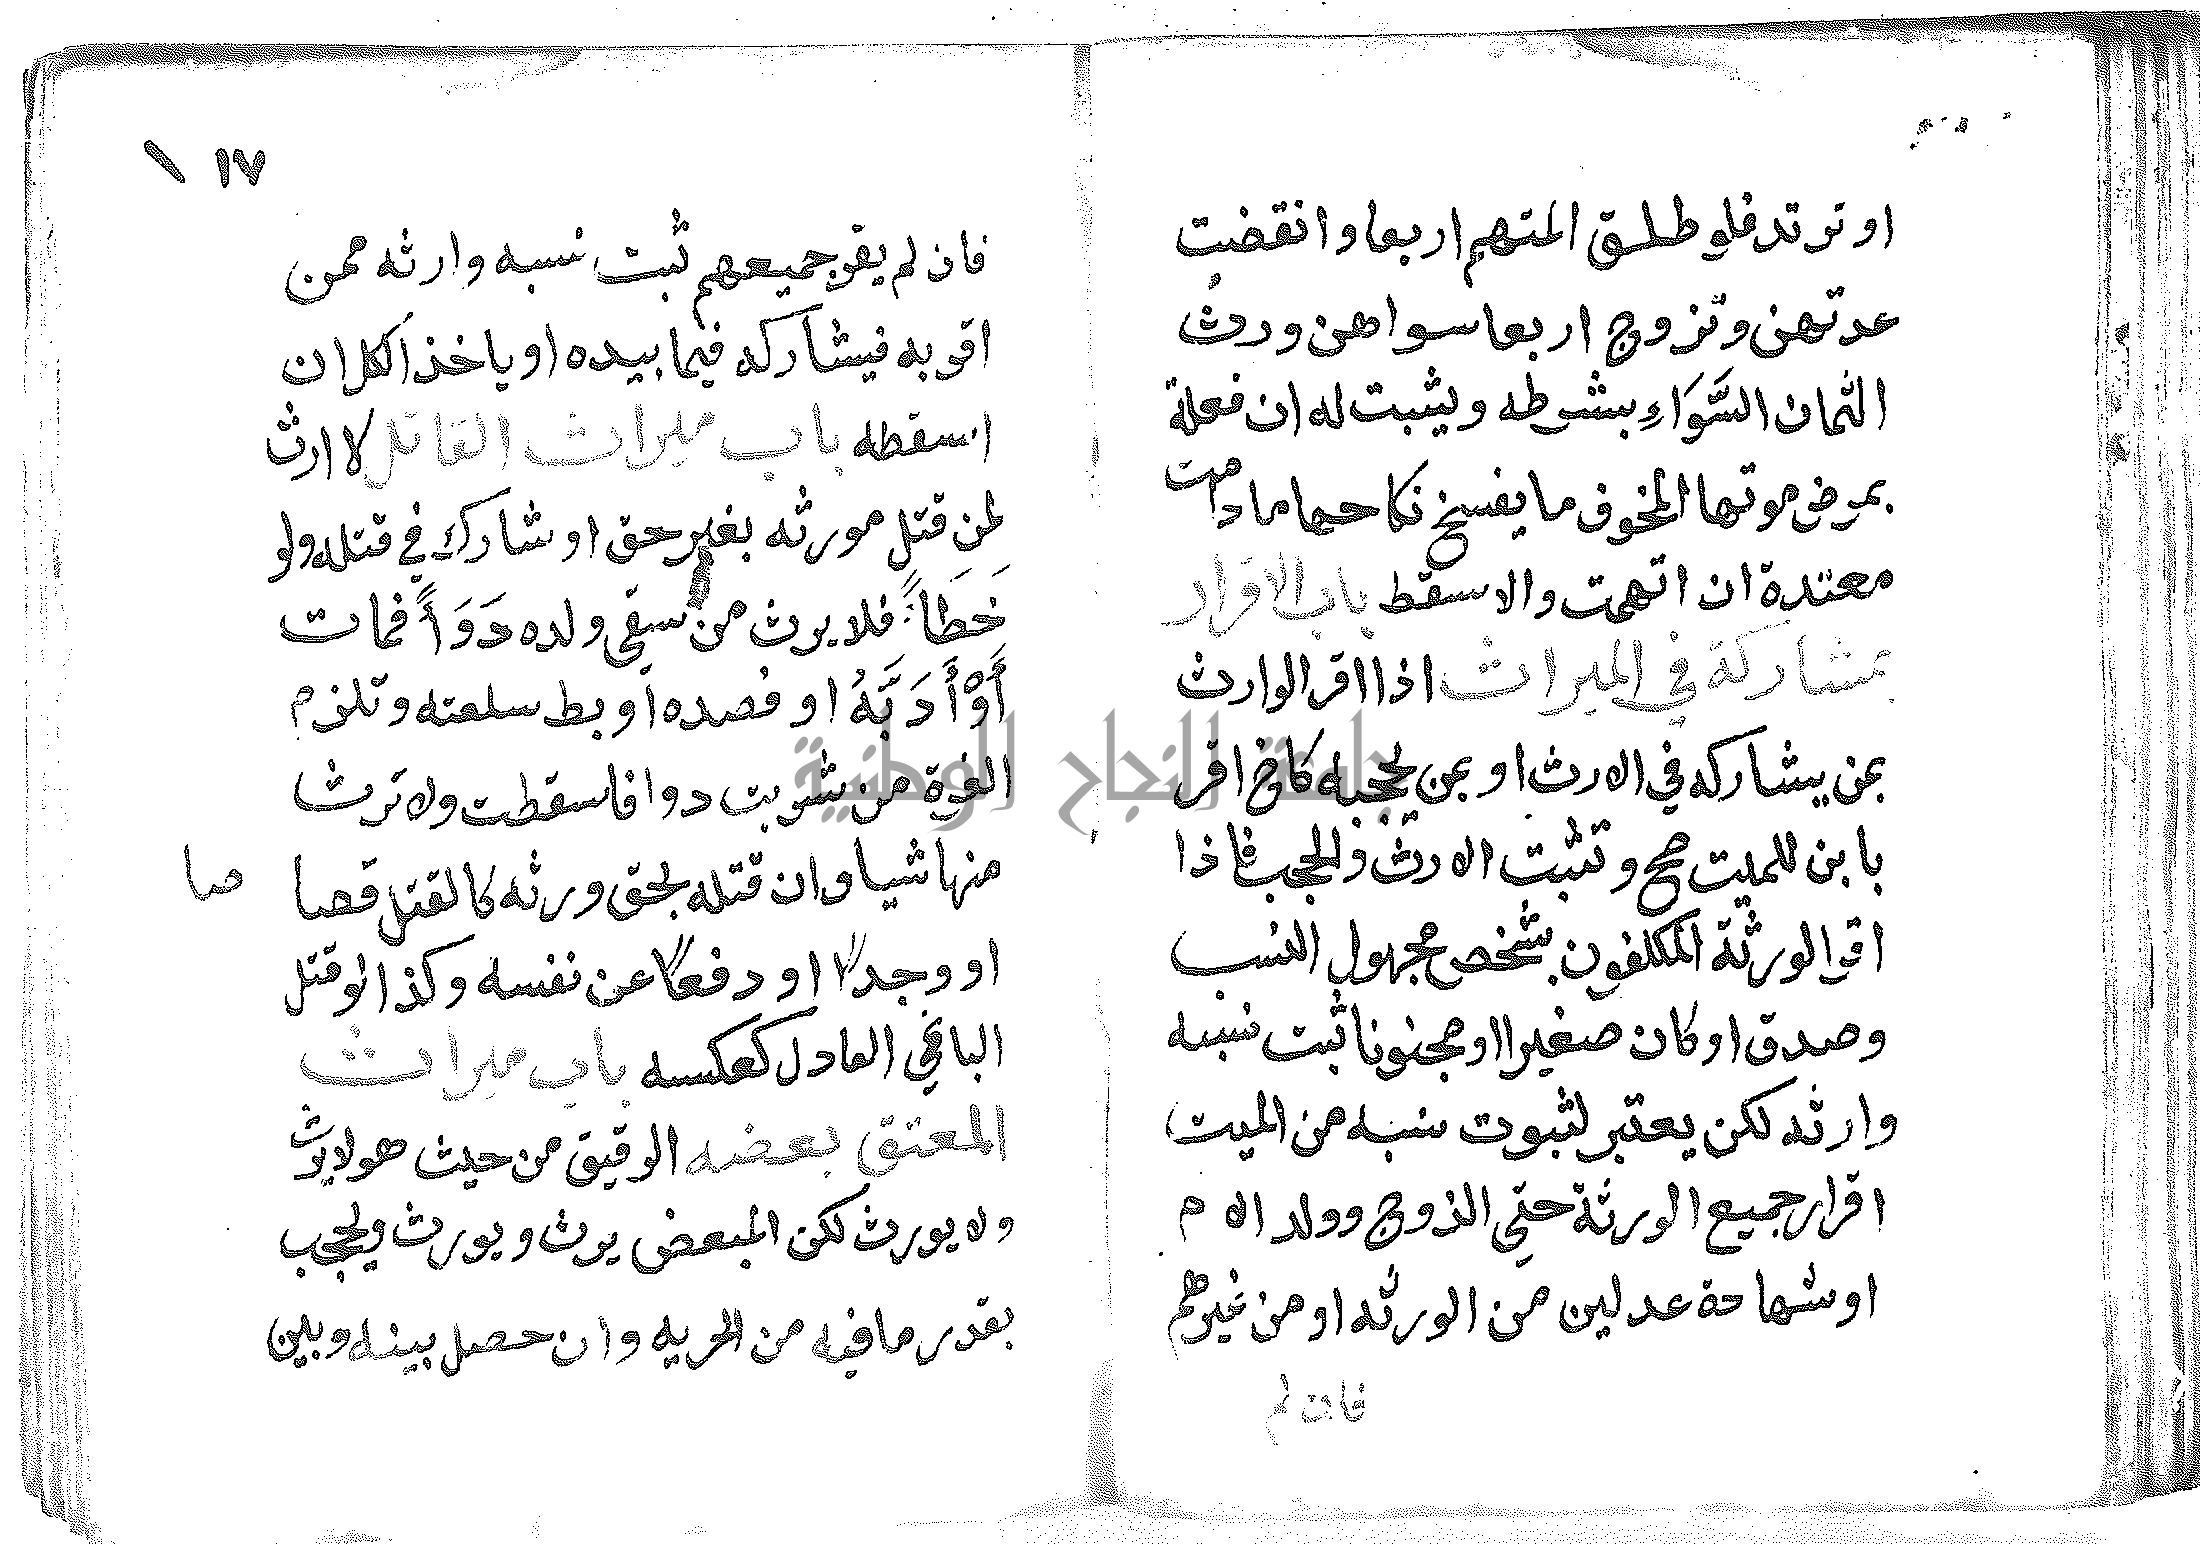 او ترتد فلو طلق المتهم اربعا وانقضت
عدتهن وتزوج اربعا سواهن ورث
الثمان السَّوَاءِ بشرطه ويثبت له ان فعلة
بمرض موتها المخوف ما يفسخ نكاحها ما دامت
معتدة ان اتهمت والا سقط باب الاقرار
بمشاركة في الميراث اذا اقر الوارث
بمن يشاركه في الارث او بمن يحجبه كاخ اقر
بابن للميت صح وتثبت الارث والحجب فاذا
اقر الورثة المكلفون بشخص مجهول النسب
وصدق او كان صغيرا او مجنونا ثبت نسبه
وارثه لكن يعتبر لثبوت نسبه من الميت
اقرار جميع الورثة حتى الزوج وولد الام
او شهادة عدلين من الورثه او من غيرهم
فان لم
١٧١
فان لم يقر جميعهم ثبت نسبه وارثه ممن
اقر به فيشاركه فيما بيده او ياخذ الكل ان
اسقطه باب ميراث القاتل لا ارث
لمن قتل مورثه بغير حق او شارك في قتله ولو
خَطَاً فلا يرث من سقى ولده دَوَاً فمات
أَوْ أَدَبَّهُ او فصده او بط سلعته وتلزم
الغرة من شربت دوا فاسقطت ولا ترث
منها شيا وان قتله بحق ورثه كالقتل قصا صا
او وجدلا او دفعا عن نفسه وكذا لو قتل
الباقي العادل كعكسه باب ميراث
المعتق بعضه الرقيق من حيث هو لا يرث
ولا يورث لكن المبعض يرث ويورث ويحجب
بقدر ما فيه من الحريه وان حصل بينه وبين
جامعة النجاح الوطنية